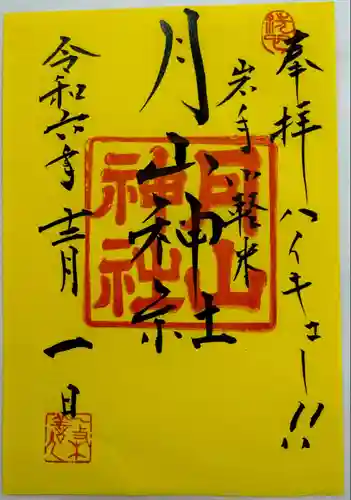 奉拝 ハイキュー!!
岩手 軽米
月山神社
月山
神社
令和六年 十二月 一日